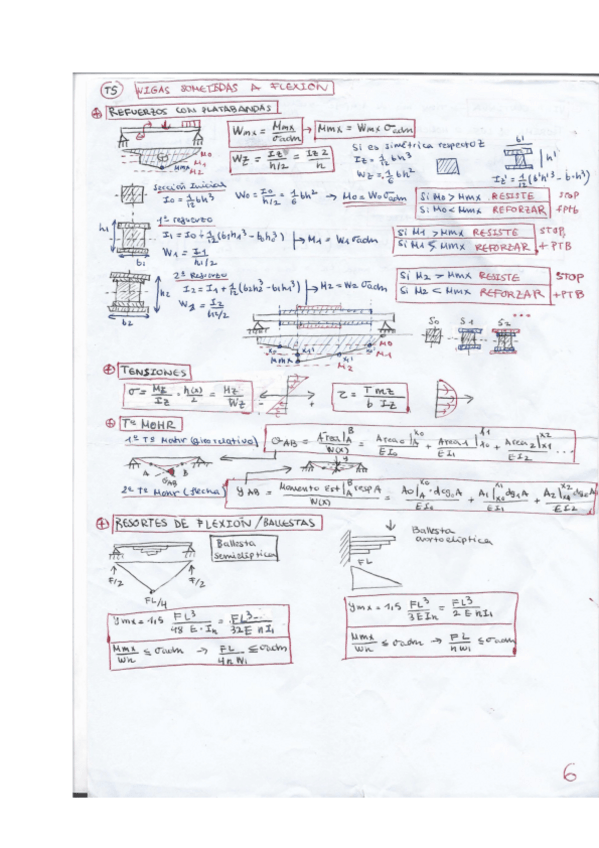 T5 VIGAS SOMETIDAS A FLEXIÓN
REFUERZOS CON PLATABANDAS
Wmx = Mmx/σadm → Mmx = Wmx σadm
Wz = Iz/(h/2) = Iz 2/h
Si es simétrica respecto z
Iz = 1/12 bh³
Wz = 1/6 bh²
b1
h1
M0
M1
M2
Mmx
sección inicial
I0 = 1/12 bh³
W0 = I0/(h/2) = 1/6 bh² → M0 = W0 σadm
Si M0 > Mmx RESISTE STOP
Si M0 < Mmx REFORZAR +PTB
1er refuerzo
h1
b1
I1 = I0 + 1/12 (b1h1³ - b0h0³) → M1 = W1 σadm
W1 = I1/(h1/2)
Si M1 > Mmx RESISTE STOP
Si M1 ≤ Mmx REFORZAR + PTB
2º Refuerzo
h2
b2
I2 = I1 + 1/12 (b2h2³ - b1h1³) → M2 = W2 σadm
W2 = I2/(h2/2)
Si M2 > Mmx RESISTE STOP
Si M2 < Mmx REFORZAR +PTB
S0 S1 S2 ...
M0
M1
M2
Mmx
TENSIONES
σ = Mz/Iz · h(x)/2 = Mz/Wz
- +
τ = T mz / b Iz
Tª MOHR
1er Tª Mohr (giro relativo)
θAB = Area|A B / N(x) = Area0|A x0 / EI0 + Area1|x0 x1 / EI1 + Area2|x1 x2 / EI2 ...
A B
θAB
y
2º Tª Mohr (flecha)
yAB = Momento Est|A B resp A / N(x) = A0|A x0 · dcg0A / EI0 + A1|x0 x1 dcg1A / EI1 + A2|x1 x2 dcg2A / EI2
RESORTES DE FLEXIÓN/BALLESTAS
Ballesta semielíptica
Ballesta cuartoelíptica
F/2
F/2
FL/4
FL
ymx = 1,5 FL³/48 E·In = FL³/32E nI1
Mmx/Wn ≤ σadm → FL/4n W1 ≤ σadm
ymx = 1,5 FL³/3EIn = FL³/2 E nI1
Mmx/Wn ≤ σadm → FL/n W1 ≤ σadm
6